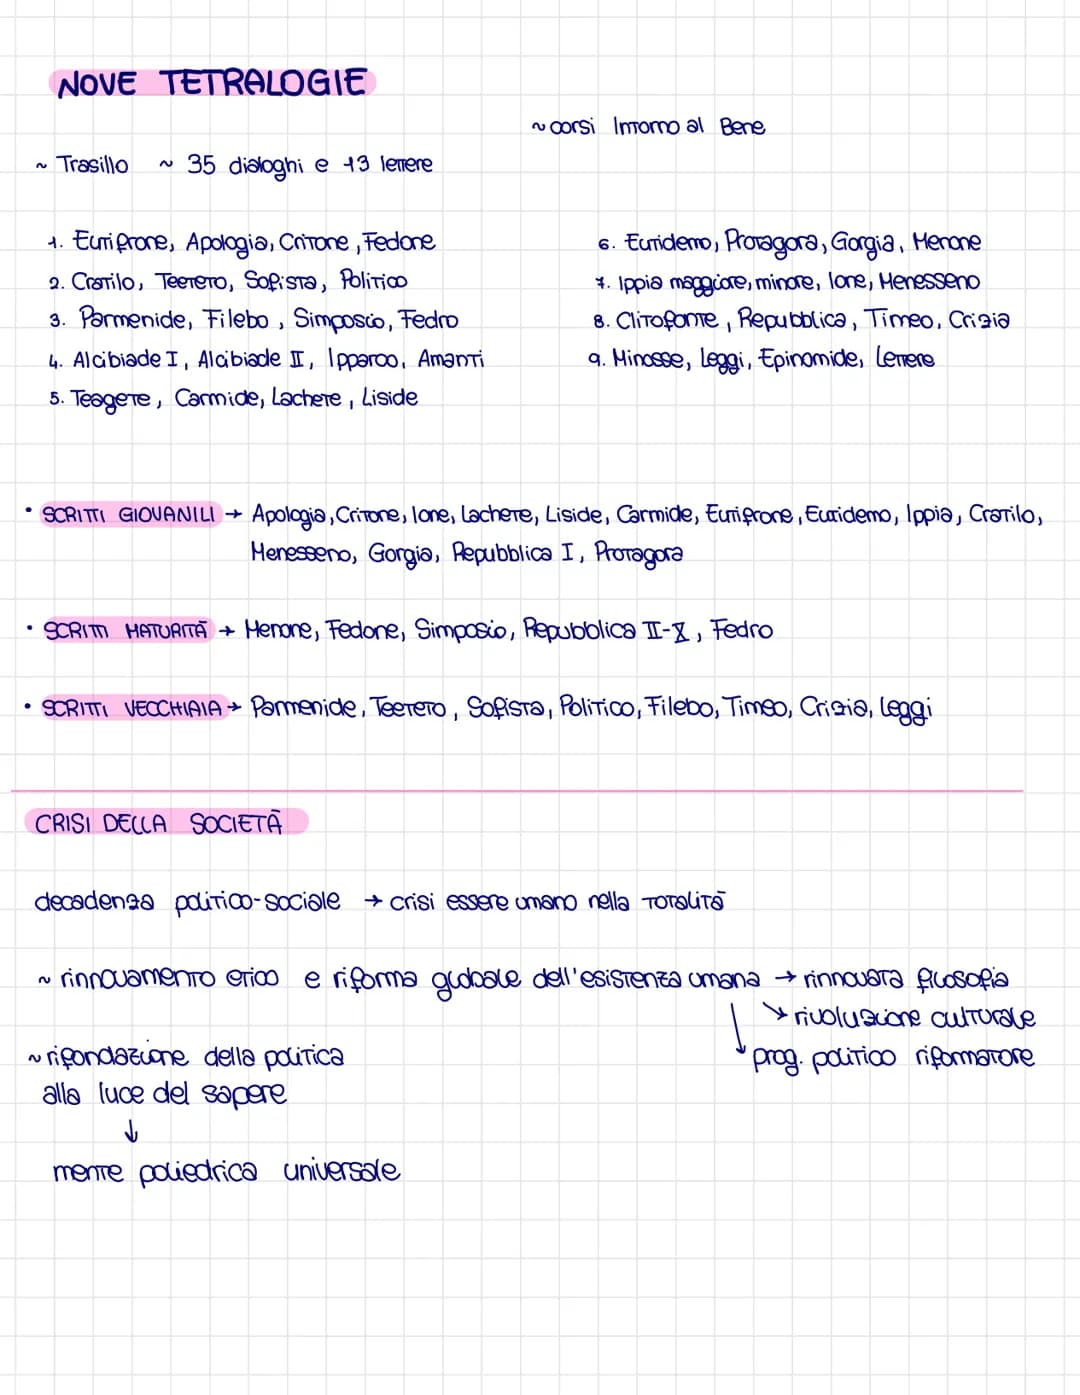 NOVE TETRALOGIE
~ corsi Intorno al Bene
~ Trasillo ~ 35 dialoghi e 13 lettere
1. Eutifrone, Apologia, Critone, Fedone
2. Cratilo, Teeteto, Sofista, Politico
3. Parmenide, Filebo, Simposio, Fedro
4. Alcibiade I, Alcibiade II, Ipparco, Amanti
5. Teagete, Carmide, Lachete, Liside
6. Eutidemo, Protagora, Gorgia, Menone
7. Ippia maggiore, minore, Ione, Menesseno
8. Clitofonte, Repubblica, Timeo, Crizia
9. Minosse, Leggi, Epinomide, Lettere
• SCRITTI GIOVANILI → Apologia, Critone, Ione, Lachete, Liside, Carmide, Eutifrone, Eutidemo, Ippia, Cratilo,
Menesseno, Gorgia, Repubblica I, Protagora
• SCRITTI MATURITÀ → Menone, Fedone, Simposio, Repubblica II-X, Fedro
• SCRITTI VECCHIAIA → Parmenide, Teeteto, Sofista, Politico, Filebo, Timeo, Crizia, Leggi
CRISI DELLA SOCIETÀ
decadenza politico-sociale → crisi essere umano nella totalità
~ rinnovamento etico e riforma globale dell'esistenza umana → rinnovata filosofia
↘ rivoluzione culturale
↓ prog. politico riformatore
~ rifondazione della politica
alla luce del sapere
↓
mente poliedrica universale